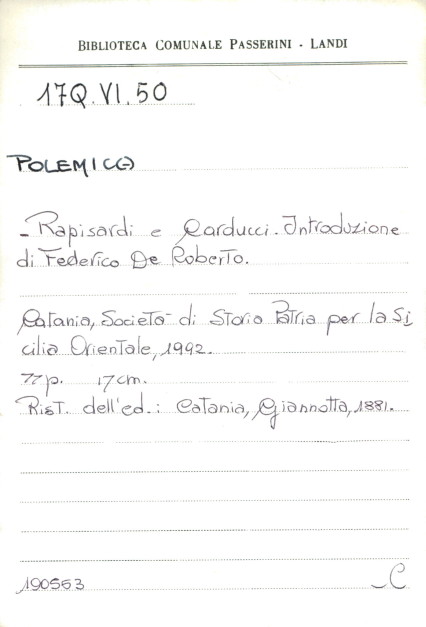 BIBLIOTECA COMUNALE PASSERINI - LANDI
17Q.VI.50
POLEMICA
- Rapisardi e Carducci. Introduzione
di Federico De Roberto.
Catania, Società di Storia Patria per la Si
cilia Orientale, 1992.
77 p. 17 cm.
Rist. dell'ed.: Catania, Giannotta, 1881.
190553
C